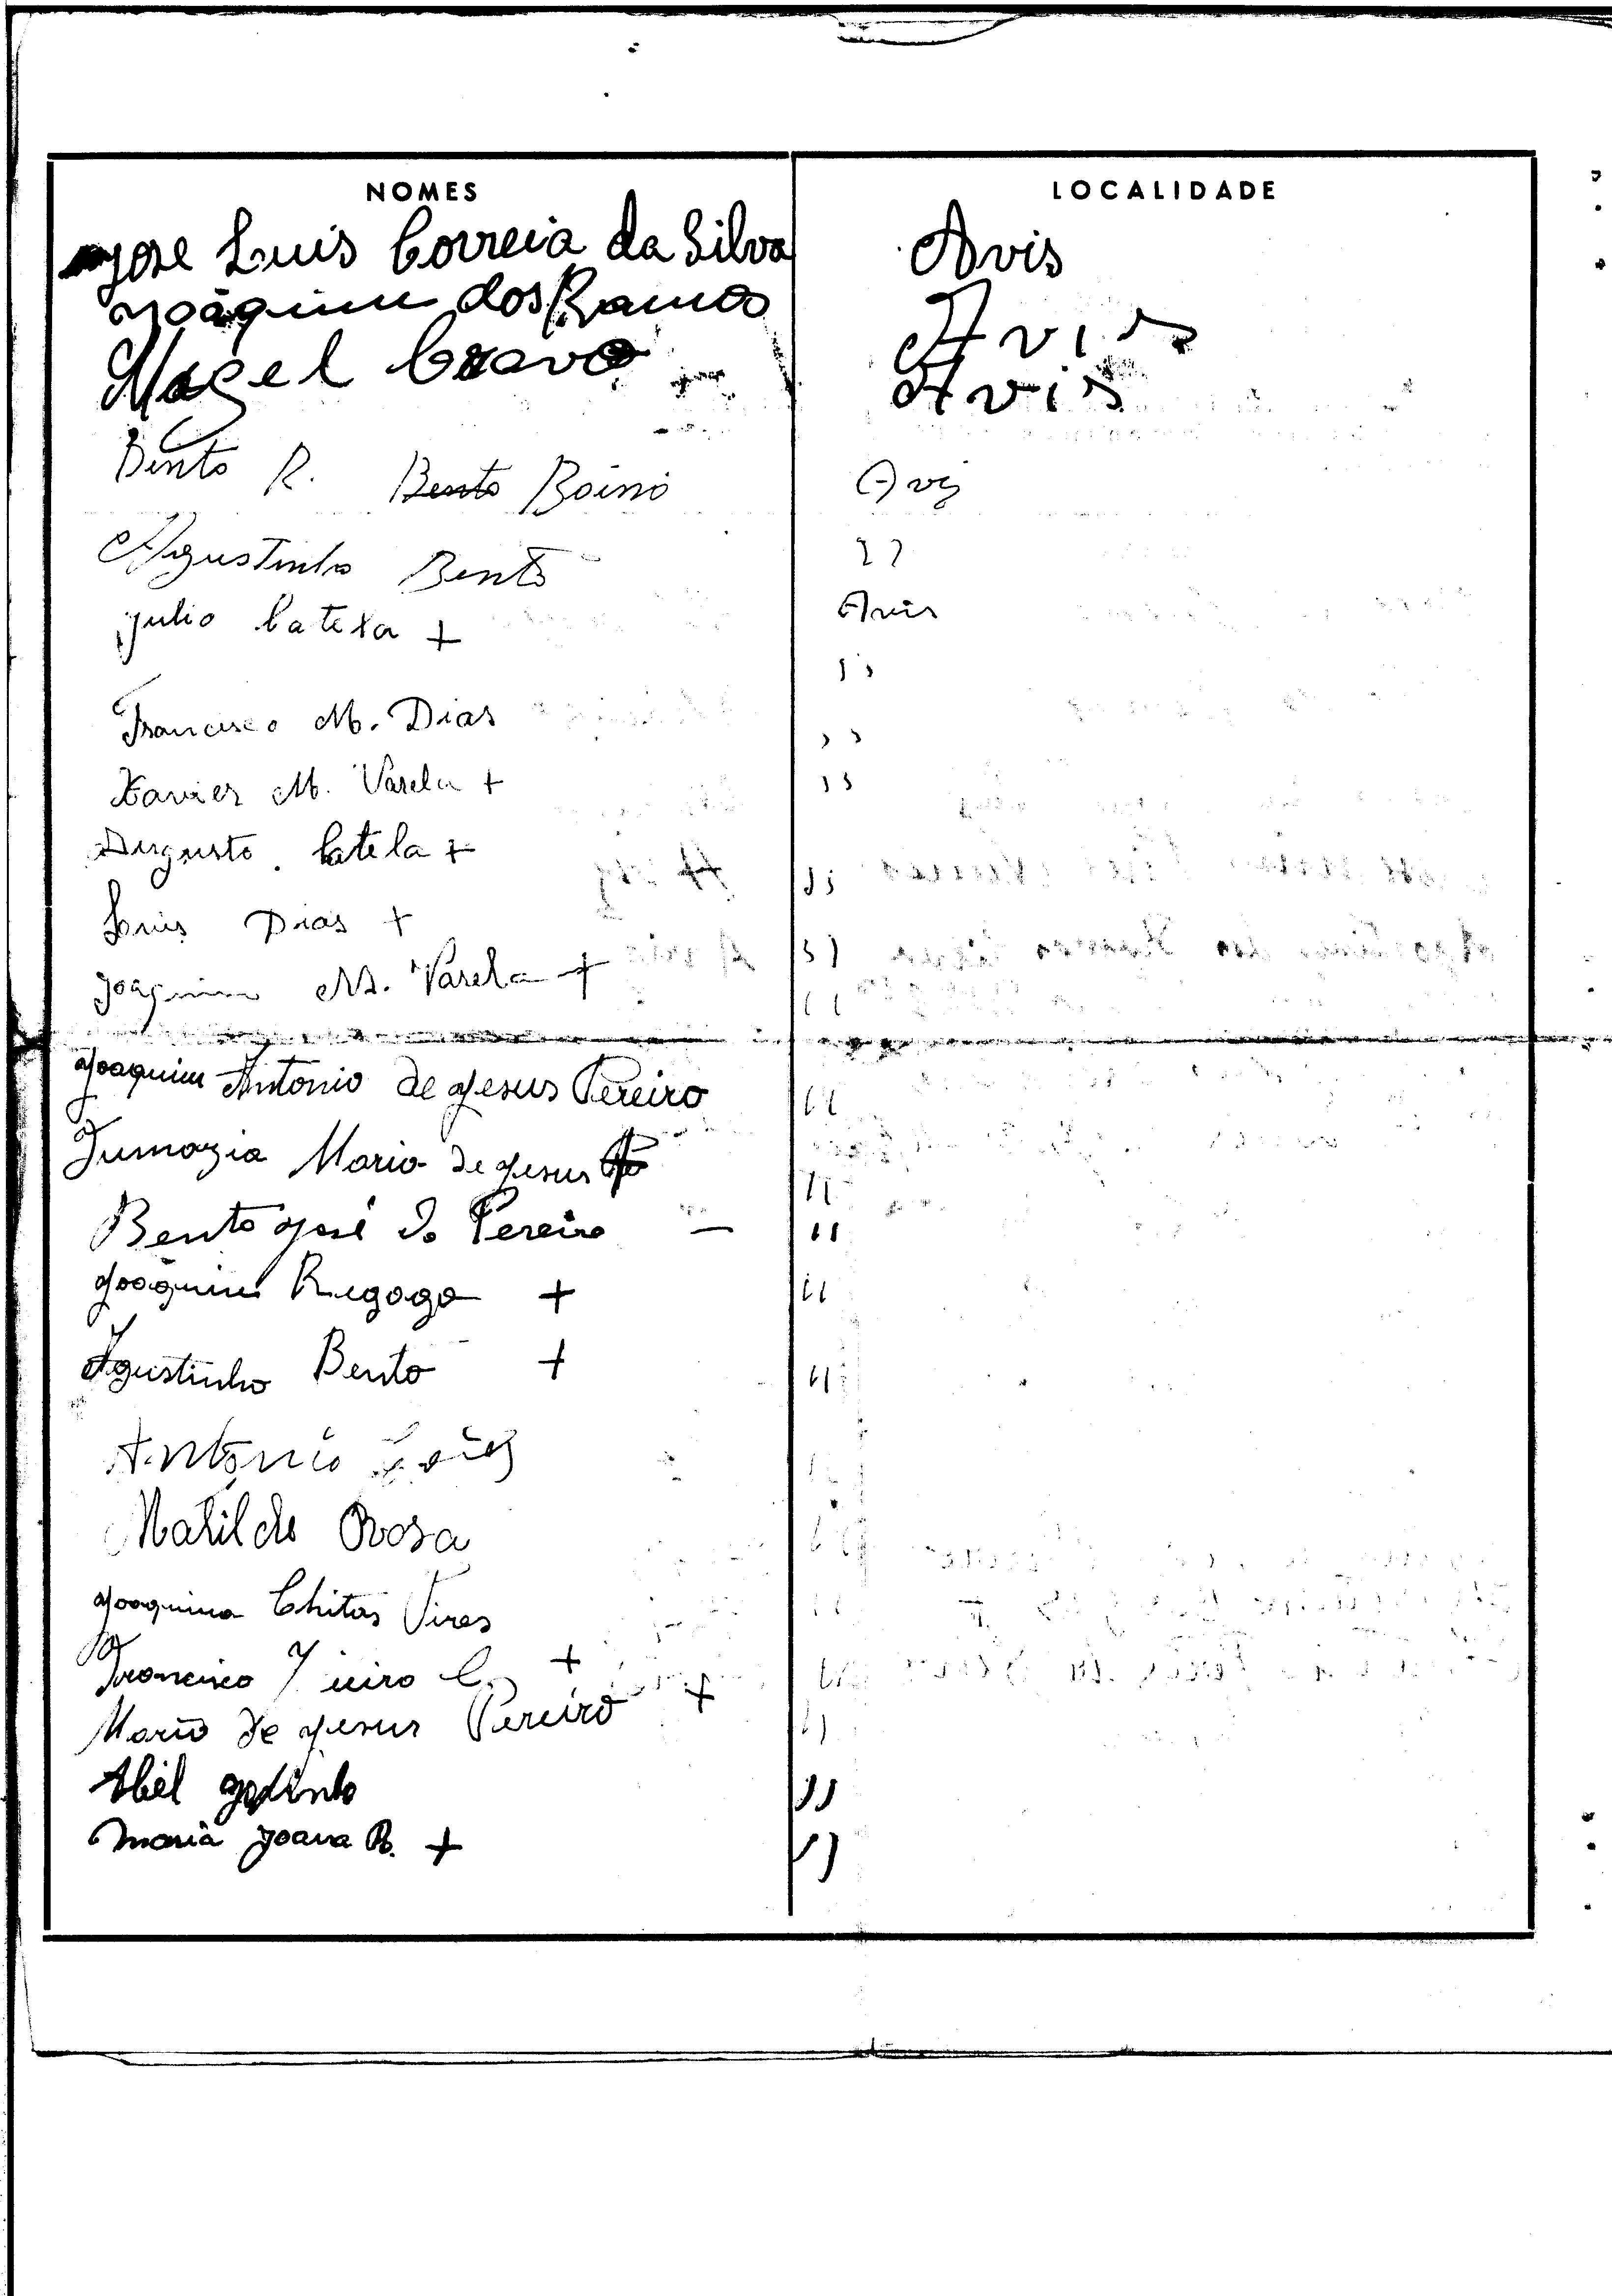 NOMES LOCALIDADE
Jose Luis Correia da Silva Avis
Joaquim dos Ramos Avis
Magel Cravo Avis
Bento R. Bento Boino Avis
Agustinho Bento ,,
Julio Catexa + Avis
Francisco M. Dias ,,
Xavier M. Varela + ,,
Augusto Catela + ,,
Luis Dias + ,,
Joaquim M. Varela + ,,
Joaquim Antonio de Jesus Pereiro ,,
Maria de Jesus ,,
Bento José do Pereiro — ,,
Joaquim Regago + ,,
Agustinho Bento + ,,
Antonio
Matilde Rosa ,,
Joaquina Chitas Pires ,,
Francisco C. + ,,
Maria de Jesus Pereiro + ,,
Abel Godinho ,,
Maria Joana R. + ,,